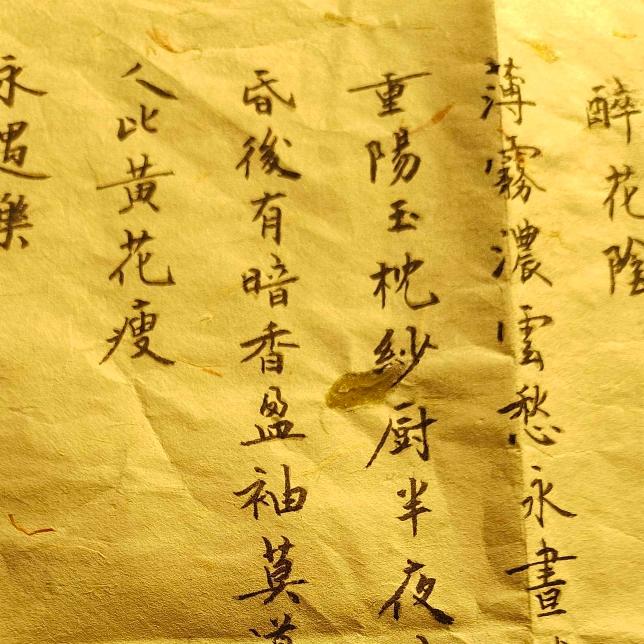 醉花陰
薄霧濃雲愁永晝
重陽玉枕紗厨半夜
昏後有暗香盈袖莫道
人比黃花瘦
永遇樂